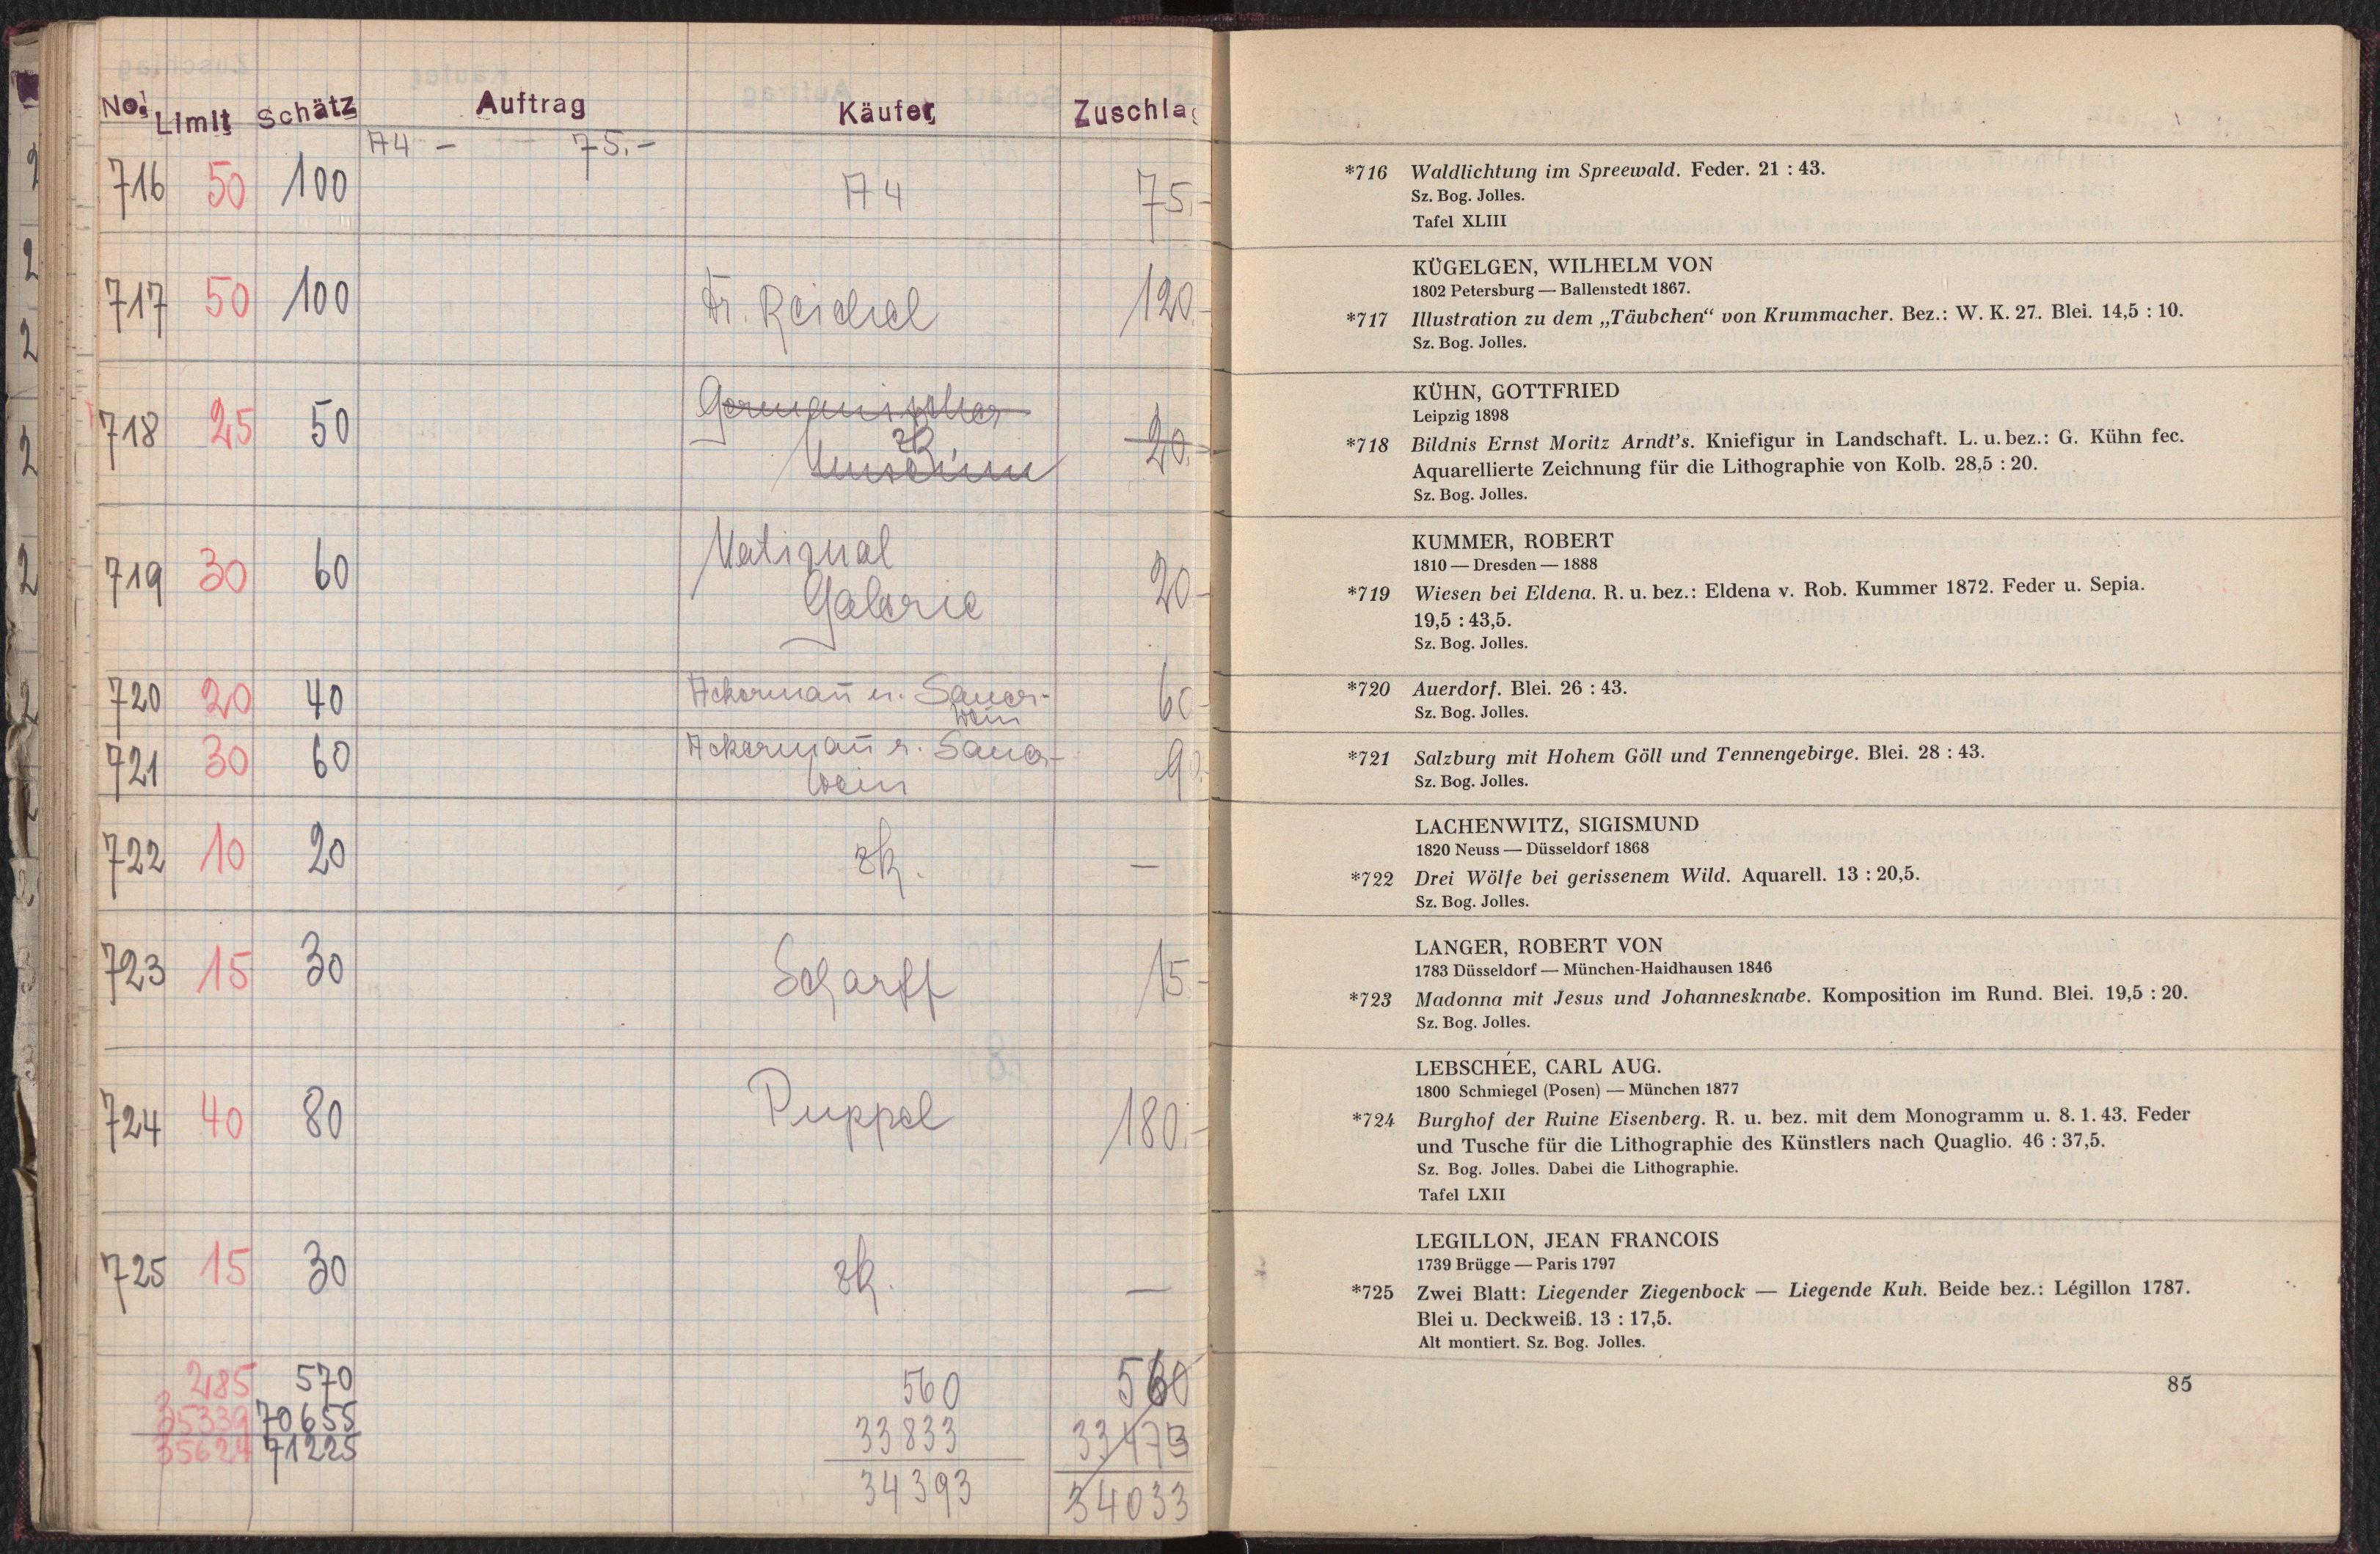 No. Limit Schätz Auftrag Käufer Zuschlag
A4 – 75.–
716 50 100 A4 75.–
717 50 100 Dr. Reichel 120.–
718 25 50 Germanisches zk Museum 20.–
719 30 60 National Galerie 20.–
720 20 40 Ackermañ u. Sauerwein 60.–
721 30 60 Ackermañ u. Sauerwein 90.–
722 10 20 zk. –
723 15 30 Scharff 15.–
724 40 80 Puppel 180.–
725 15 30 zk. –
285 570 560 560
35339 70655 33833 33473
35624 71225 34393 34033
*716 Waldlichtung im Spreewald. Feder. 21 : 43.
Sz. Bog. Jolles.
Tafel XLIII
KÜGELGEN, WILHELM VON
1802 Petersburg — Ballenstedt 1867.
*717 Illustration zu dem „Täubchen“ von Krummacher. Bez.: W. K. 27. Blei. 14,5 : 10.
Sz. Bog. Jolles.
KÜHN, GOTTFRIED
Leipzig 1898
*718 Bildnis Ernst Moritz Arndt's. Kniefigur in Landschaft. L. u. bez.: G. Kühn fec.
Aquarellierte Zeichnung für die Lithographie von Kolb. 28,5 : 20.
Sz. Bog. Jolles.
KUMMER, ROBERT
1810 — Dresden — 1888
*719 Wiesen bei Eldena. R. u. bez.: Eldena v. Rob. Kummer 1872. Feder u. Sepia.
19,5 : 43,5.
Sz. Bog. Jolles.
*720 Auerdorf. Blei. 26 : 43.
Sz. Bog. Jolles.
*721 Salzburg mit Hohem Göll und Tennengebirge. Blei. 28 : 43.
Sz. Bog. Jolles.
LACHENWITZ, SIGISMUND
1820 Neuss — Düsseldorf 1868
*722 Drei Wölfe bei gerissenem Wild. Aquarell. 13 : 20,5.
Sz. Bog. Jolles.
LANGER, ROBERT VON
1783 Düsseldorf — München-Haidhausen 1846
*723 Madonna mit Jesus und Johannesknabe. Komposition im Rund. Blei. 19,5 : 20.
Sz. Bog. Jolles.
LEBSCHÉE, CARL AUG.
1800 Schmiegel (Posen) — München 1877
*724 Burghof der Ruine Eisenberg. R. u. bez. mit dem Monogramm u. 8. 1. 43. Feder
und Tusche für die Lithographie des Künstlers nach Quaglio. 46 : 37,5.
Sz. Bog. Jolles. Dabei die Lithographie.
Tafel LXII
LEGILLON, JEAN FRANCOIS
1739 Brügge — Paris 1797
*725 Zwei Blatt: Liegender Ziegenbock — Liegende Kuh. Beide bez.: Légillon 1787.
Blei u. Deckweiß. 13 : 17,5.
Alt montiert. Sz. Bog. Jolles.
85